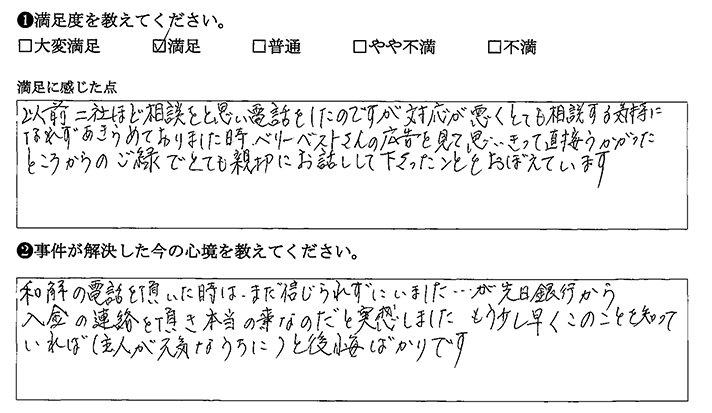 ❶満足度を教えてください。
□大変満足 ☑満足 □普通 □やや不満 □不満
満足に感じた点
以前二社ほど相談をと思い電話をしたのですが対応が悪くとても相談する気持に
なれずあきらめておりました時、ベリーベストさんの広告を見て思いきって直接うかがった
ところからのご縁でとても親切にお話しして下さったことをおぼえています
❷事件が解決した今の心境を教えてください。
和解の電話を頂いた時は、まだ信じられずにいました…が先日銀行から
入金の連絡を頂き本当の事なのだと実感しました もう少し早くこのことを知って
いれば(主人が元気なうちに)と後悔ばかりです